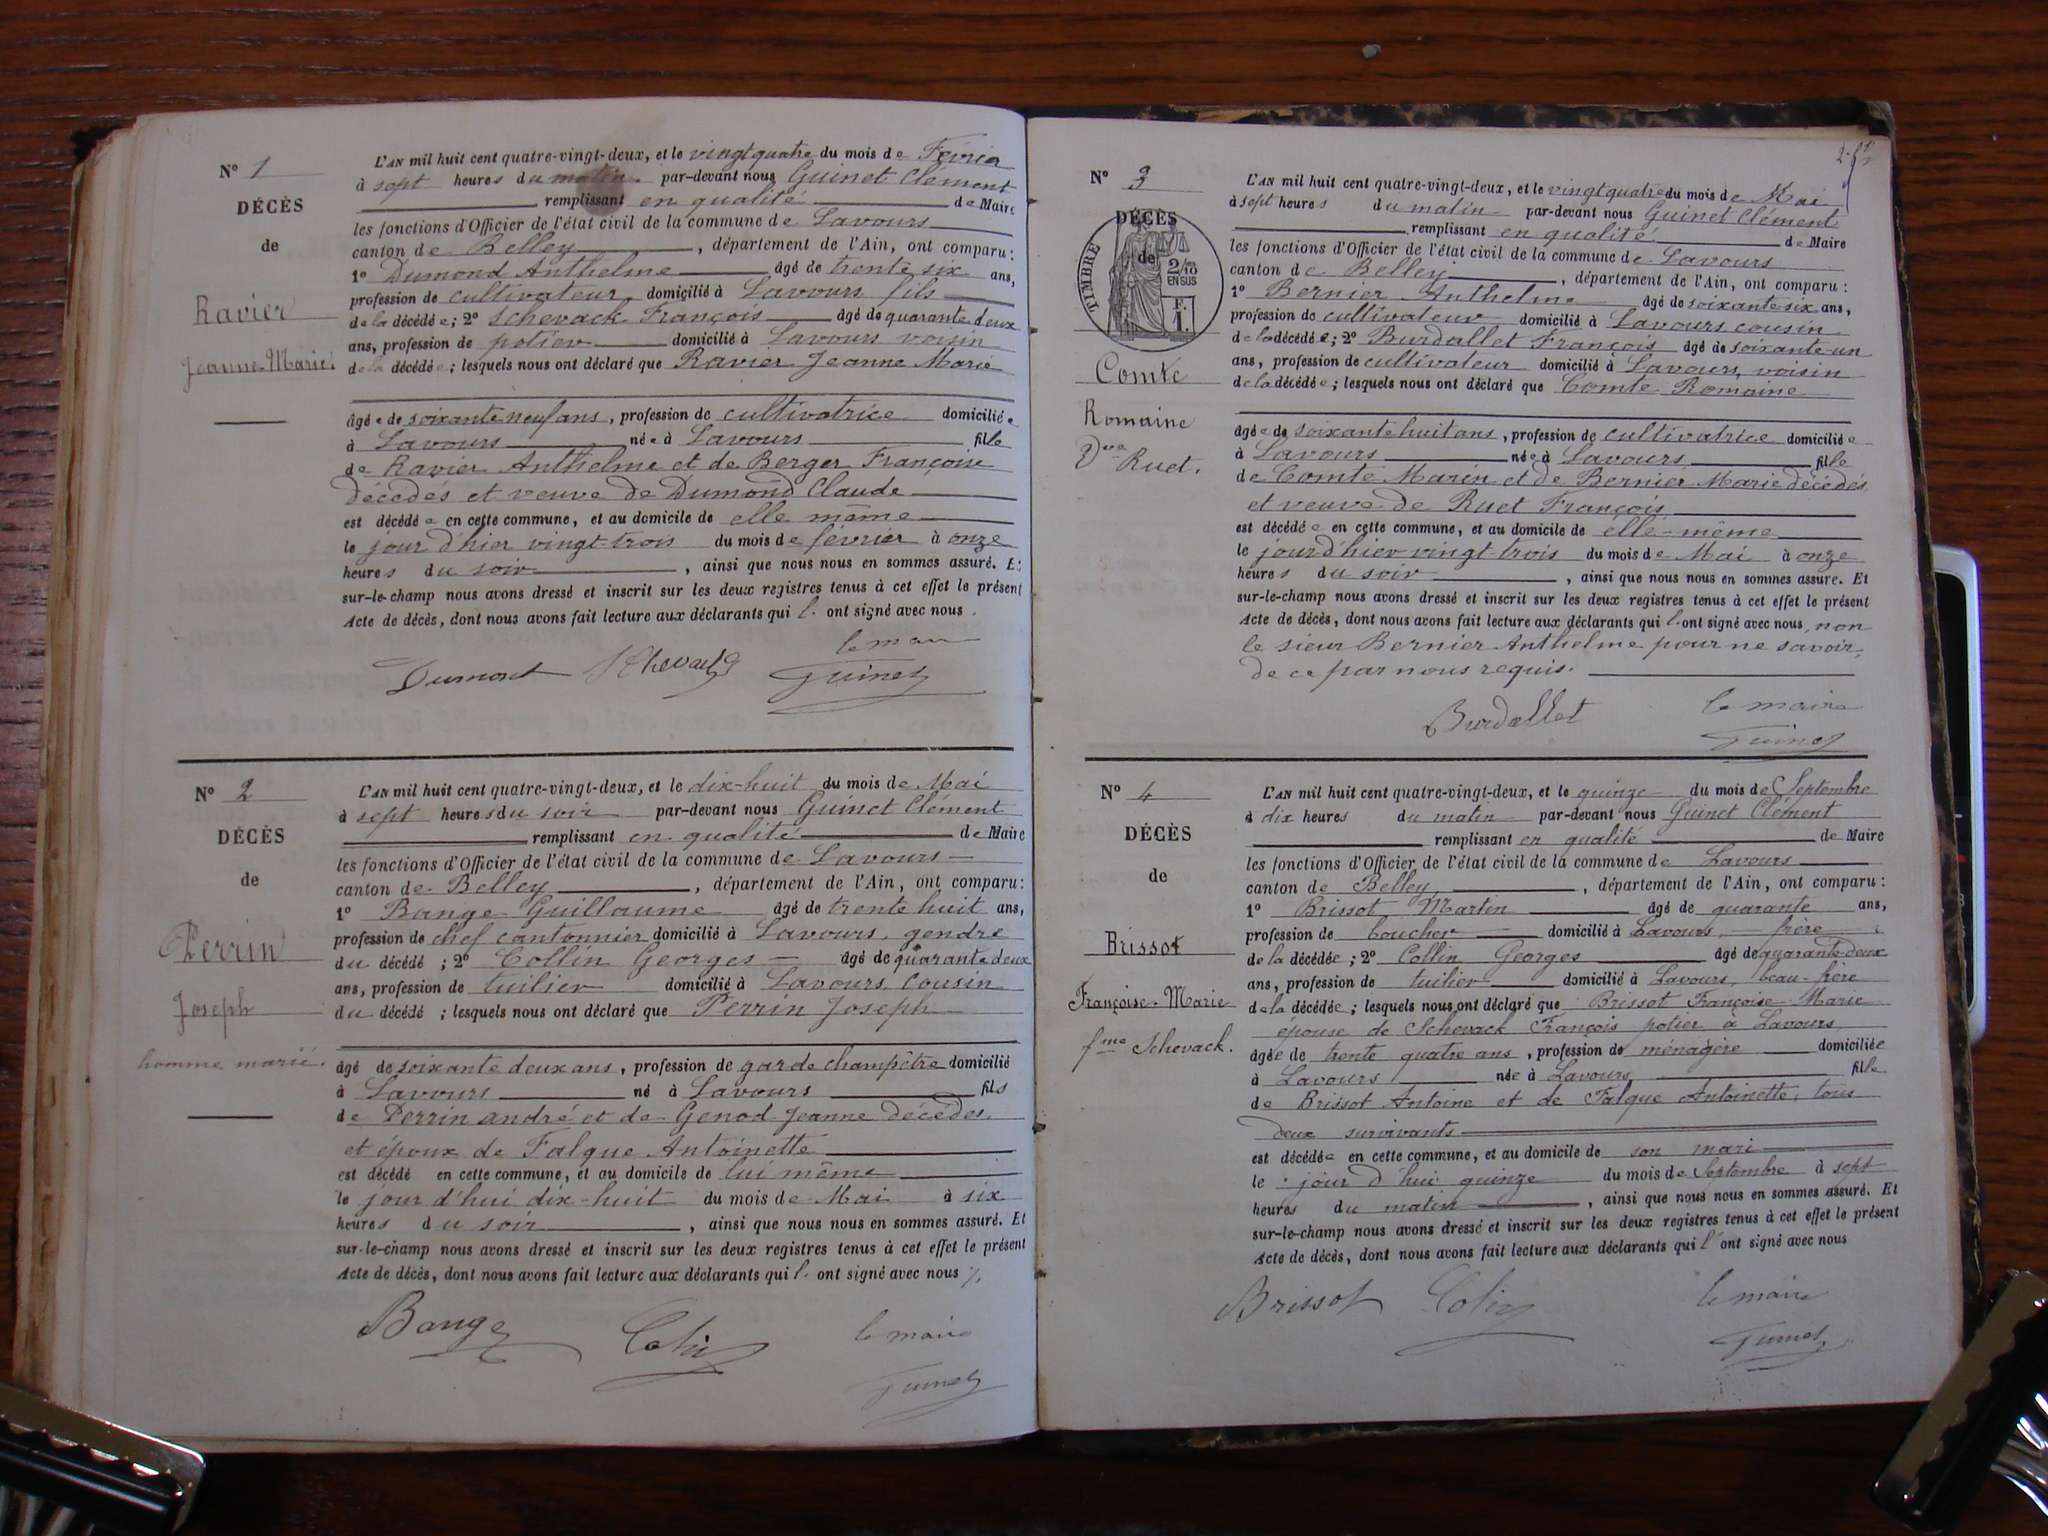 Nº 1
DÉCÈS
de
Ravier
Jeanne-Marie.
L'AN mil huit cent quatre-vingt-deux, et le vingt quatre du mois de Février
à sept heures du matin. par-devant nous Guinet Clément
remplissant en qualité de Maire
les fonctions d'Officier de l'état civil de la commune de Lavours
canton de Belley, département de l'Ain, ont comparu:
1º Dumond Anthelme âgé de trente six ans,
profession de cultivateur domicilié à Lavours fils
de la décédée; 2º Schevack François âgé de quarante deux
ans, profession de potier domicilié à Lavours voisin
de la décédée; lesquels nous ont déclaré que Ravier Jeanne Marie
âgée de soixante neuf ans, profession de cultivatrice domiciliée
à Lavours née à Lavours fille
de Ravier Anthelme et de Berger Françoise
décédés et veuve de Dumond Claude
est décédée en cette commune, et au domicile de elle même
le jour d'hier vingt-trois du mois de février à onze
heures du soir, ainsi que nous nous en sommes assuré. Et
sur-le-champ nous avons dressé et inscrit sur les deux registres tenus à cet effet le présent
Acte de décès, dont nous avons fait lecture aux déclarants qui l'ont signé avec nous.
le maire
Dumont Schevack Guinet
Nº 2
DÉCÈS
de
Perrin
Joseph
homme marié.
L'AN mil huit cent quatre-vingt-deux, et le dix-huit du mois de Mai
à sept heures du soir par-devant nous Guinet Clément
remplissant en qualité de Maire
les fonctions d'Officier de l'état civil de la commune de Lavours
canton de Belley, département de l'Ain, ont comparu:
1º Bange Guillaume âgé de trente huit ans,
profession de chef cantonnier domicilié à Lavours, gendre
du décédé; 2º Collin Georges âgé de quarante deux
ans, profession de tuilier domicilié à Lavours, Cousin
du décédé; lesquels nous ont déclaré que Perrin Joseph
âgé de soixante deux ans, profession de garde champêtre domicilié
à Lavours né à Lavours fils
de Perrin andré et de Genod Jeanne décédés,
et époux de Falque Antoinette
est décédé en cette commune, et au domicile de lui même
le jour d'hui dix-huit du mois de Mai à six
heures du soir, ainsi que nous nous en sommes assuré. Et
sur-le-champ nous avons dressé et inscrit sur les deux registres tenus à cet effet le présent
Acte de décès, dont nous avons fait lecture aux déclarants qui l'ont signé avec nous
Bange Colin le maire
Guinet
Nº 3
DÉCÈS
de
TIMBRE
2/10 EN SUS
F. 1.
Comte
Romaine
Vve Ruet.
L'AN mil huit cent quatre-vingt-deux, et le vingt quatre du mois de Mai
à sept heures du matin par-devant nous Guinet Clément
remplissant en qualité de Maire
les fonctions d'Officier de l'état civil de la commune de Lavours
canton de Belley, département de l'Ain, ont comparu:
1º Bernier Anthelme âgé de soixante-six ans,
profession de cultivateur domicilié à Lavours cousin
de la décédée; 2º Burdallet François âgé de soixante-un
ans, profession de cultivateur domicilié à Lavours, voisin
de la décédée; lesquels nous ont déclaré que Comte Romaine
âgée de soixante huit ans, profession de cultivatrice domiciliée
à Lavours née à Lavours fille
de Comte Marin et de Bernier Marie décédés
et veuve de Ruet François
est décédée en cette commune, et au domicile de elle-même
le jour d'hier vingt-trois du mois de Mai à onze
heures du soir, ainsi que nous nous en sommes assuré. Et
sur-le-champ nous avons dressé et inscrit sur les deux registres tenus à cet effet le présent
Acte de décès, dont nous avons fait lecture aux déclarants qui l'ont signé avec nous, non
le sieur Bernier Anthelme pour ne savoir,
de ce par nous requis.
Burdallet le maire
Guinet
Nº 4
DÉCÈS
de
Brissot
Françoise-Marie
fme Schevack.
L'AN mil huit cent quatre-vingt-deux, et le quinze du mois de Septembre
à dix heures du matin par-devant nous Guinet Clément
remplissant en qualité de Maire
les fonctions d'Officier de l'état civil de la commune de Lavours
canton de Belley, département de l'Ain, ont comparu:
1º Brissot Martin âgé de quarante ans,
profession de boucher domicilié à Lavours, frère
de la décédée; 2º Collin Georges âgé de quarante-deux
ans, profession de tuilier domicilié à Lavours, beau-frère
de la décédée; lesquels nous ont déclaré que Brissot Françoise-Marie
épouse de Schevack François potier à Lavours,
âgée de trente quatre ans, profession de ménagère domiciliée
à Lavours née à Lavours fille
de Brissot Antoine et de Falque Antoinette, tous
deux survivants
est décédée en cette commune, et au domicile de son mari
le jour d'hui quinze du mois de Septembre à sept
heures du matin, ainsi que nous nous en sommes assuré. Et
sur-le-champ nous avons dressé et inscrit sur les deux registres tenus à cet effet le présent
Acte de décès, dont nous avons fait lecture aux déclarants qui l'ont signé avec nous
Brissot Colin le maire
Guinet